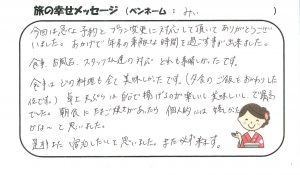 旅の幸せメッセージ (ペンネーム: みい )
今回は急な予約とプラン変更に対応して頂いてありがとうござ
いました。おかげで年末の素敵な時間を過ごす事が出来ました。
食事、お風呂、スタッフの方達の対応 どれも素晴しかったです。
食事はどの料理も全て美味しかったです。(夕食のご飯もおかわりした
位です。) 卓上天ぷらは自分で揚げるのが楽しく美味しい、で最高
でした。朝食にたまご焼きがあったら個人的には嬉しかった
かな～と思いました。
是非また宿泊したいと思いました。また必ず来ます。